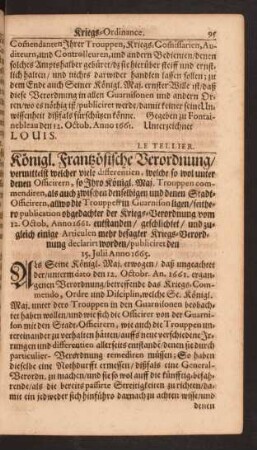 Kriegs-Ordinance. 95
Commendanten Jhrer Trouppen, Kriegs-Commissarien, Au-
diteurn, und Controlleuren, und andern Bedienten / denen
solches Amptshalber gebüret / daß sie hierüber steiff und ernst-
lich halten / und nichts darwider handlen lassen sollen; zu
dem Ende auch Seiner Königl. Maj. ernster Will ist / daß
diese Verordnung in allen Guarnisonen und andern Or-
ten / wo es nöthig ist / publiciret werde / damit keiner seine Un-
wissenheit dißfals fürschützen könne. Gegeben zu Fontai-
nebleau den 12. Octob. Anno 1661. Unterzeichnet
LOUIS.
LE TELLIER.
Königl. Frantzösische Verordnung /
vermittelst welcher viele differentien, welche so wol unter
denen Officirern, so Jhro Königl. Maj. Trouppen com-
mendiren, als auch zwischen denselbigen und denen Stads-
Officirern, allwo die Trouppen in Guarnison ligen / seithe-
ro publication obgedachter der Kriegs-Verordnung vom
12. Octob. Anno 1661. entstanden / geschlichtet / und zu-
gleich einige Articulen mehr besagter Kriegs-Verord-
nung declarirt worden / publiciret den
15. Julii Anno 1665.
Als Seine Königl. Maj. erwogen / daß ungeachtet
der / unterm dato den 12. Octobr. An. 1661. ergan-
genen Verordnung / betreffende das Kriegs-Com-
mendo, Ordre und Disciplin, welche Se. Königl.
Maj. unter dero Trouppen in den Guarnisonen beobach-
tet haben wollen / und wie sich die Officirer von der Guarni-
son mit den Stads-Officirern, wie auch die Trouppen un-
tereinander zu verhalten hätten / auff s neue verschiedene Jr-
rungen und differentien allerseits entstanden / denen sie durch
particulier-Verordnung remediren müssen; So haben
dieselbe eine Nohdurfft ermessen / dißfals eine General-
Verordn. zu machen / und sie so wol auff die künfftig-befah-
rende / als die bereits passirte Streitigkeiten zu richten / da-
mit ein jedweder sich hinführo darnach zu achten wisse / und
denen